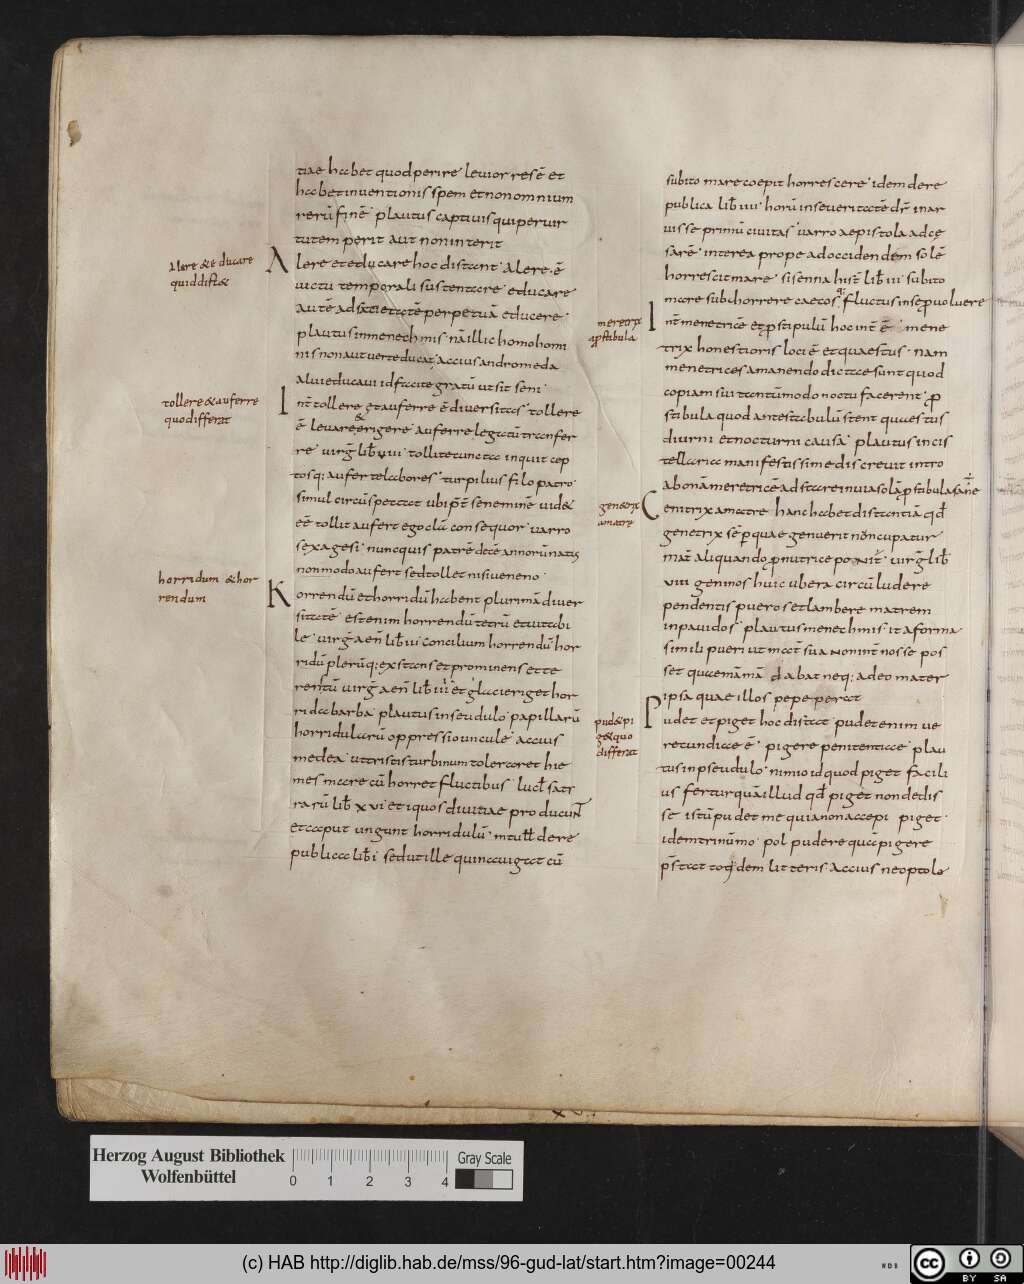 tiae habet quod perire leuior res ē et
habet inuentionis spem et non omnium
rerū finē plautus captiuis qui per uir
tutem perit aut non interit
Alere & educare
quid dist&
Alere et educare hoc distant alere ē
uictu temporali sustentare educare
autē ad satietatē perpetuā educere
plautus in menechmis nā illic homo homi
nis non aut uerte educat accius andromeda
alui educaui id facite gratū ut sit seni
tollere & auferre
quo differat
Int̄ tollere et auferre ē diuersitas tollere
ē leuare & erigere auferre legatū transfer
re uirḡ lib̄ uiii tollite cuncta inquit cep
tosq; aufer te labores turpilius filo patro
simul circūspectat ubi p̄ē senem inē uid&
eē tollit aufert ego clā consequor uarro
sexagesi nunc quis patrē decē annorū natus
non modo aufert sed tollet nisi ueneno
horridum & hor
rendum
Korrendū et horridū habent plurimā diuer
sitatē est enim horrendū tetrū et uitabi
le uirḡ aen̄ lib̄ iii concilium horrendū hor
ridū plerūq; exstans et prominens et te
rentū uirḡ aen̄ lib̄ iiii et glacie riget hor
rida barba plautus in seudulo papillarū
horridularū oppressiuncule accius
medea ut tristis turbinum toleraret hie
mes mare cū horret fluctibus lucl̄ satr
rarū lib̄ xvi et iquos diuitiae producunt
et caput ungunt horridulū m tull̄ de re
publica lib̄ i sed ut ille quin cauigat cū
subito mare coepit horrescere idem de re
publica lib̄ iiii horū in seueritatē dr̄ inar
uisse primū ciuitas uarro aepistola ad ce
sarē interea prope ad occidendem solē
horrescit mare sisenna hist̄ lib̄ iii subito
mare subhorrere caecosq; fluctus in se p̄uoluere
meretrix
& p̄stibula
Int̄ menetricē et p̄stipulū hoc int̄ē mene
trix honestioris loci ē et quaestus nam
menetrices a manendo dictae sunt quod
copiam sui tantū modo noctu facerent p̄
stibula quod ante stabulū stent quaestus
diurni et nocturni causa plautus in cis
tellaria manifestissime discreuit intro
ad bonā meretricē adstare in uia solā p̄stibula sanē
gen&rix
amatre
Genitrix a matre hanc habet distantiā qd̄
genetrix sēper quae genuerit non̄cupatur
mat̄ aliquando p̄ nutrice ponit̄ uirḡ lib̄
viii geminos huic ubera circū ludere
pendentis pueros et lambere matrem
inpauidos plautus menechmis ita forma
simili pueri ut mat̄ sua non int nosse pos
set quae mamā dabat neq; adeo mater
ipsa quae illos pepe perat
pud& pi
g& quo
differat
Pudet et piget hoc distat pudet enim ue
recundiae ē pigere penitentiae plau
tus in pseudulo nimio id quod piget facili
us fertur quā illud qd̄ piget non dedis
se istū pudet me quia non accepi piget
idem trinūmo pol pudere quā pigere
p̄stat totidem litteris accius neoptole
Herzog August Bibliothek
Wolfenbüttel
0 1 2 3 4
Gray Scale
(c) HAB http://diglib.hab.de/mss/96-gud-lat/start.htm?image=00244
WDB
cc BY SA